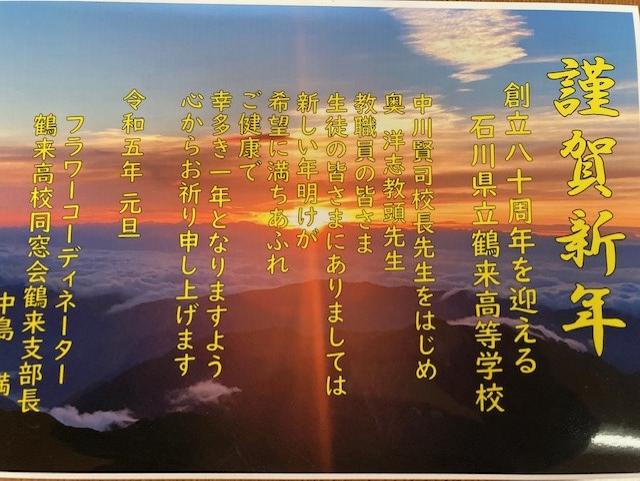 謹賀新年
創立八十周年を迎える
石川県立鶴来高等学校
中川賢司校長先生をはじめ
奥 洋志教頭先生
教職員の皆さま
生徒の皆さまにありましては
新しい年明けが
希望に満ちあふれ
ご健康で
幸多き一年となりますよう
心からお祈り申し上げます
令和五年 元旦
フラワーコーディネーター
鶴来高校同窓会鶴来支部長
中島 満